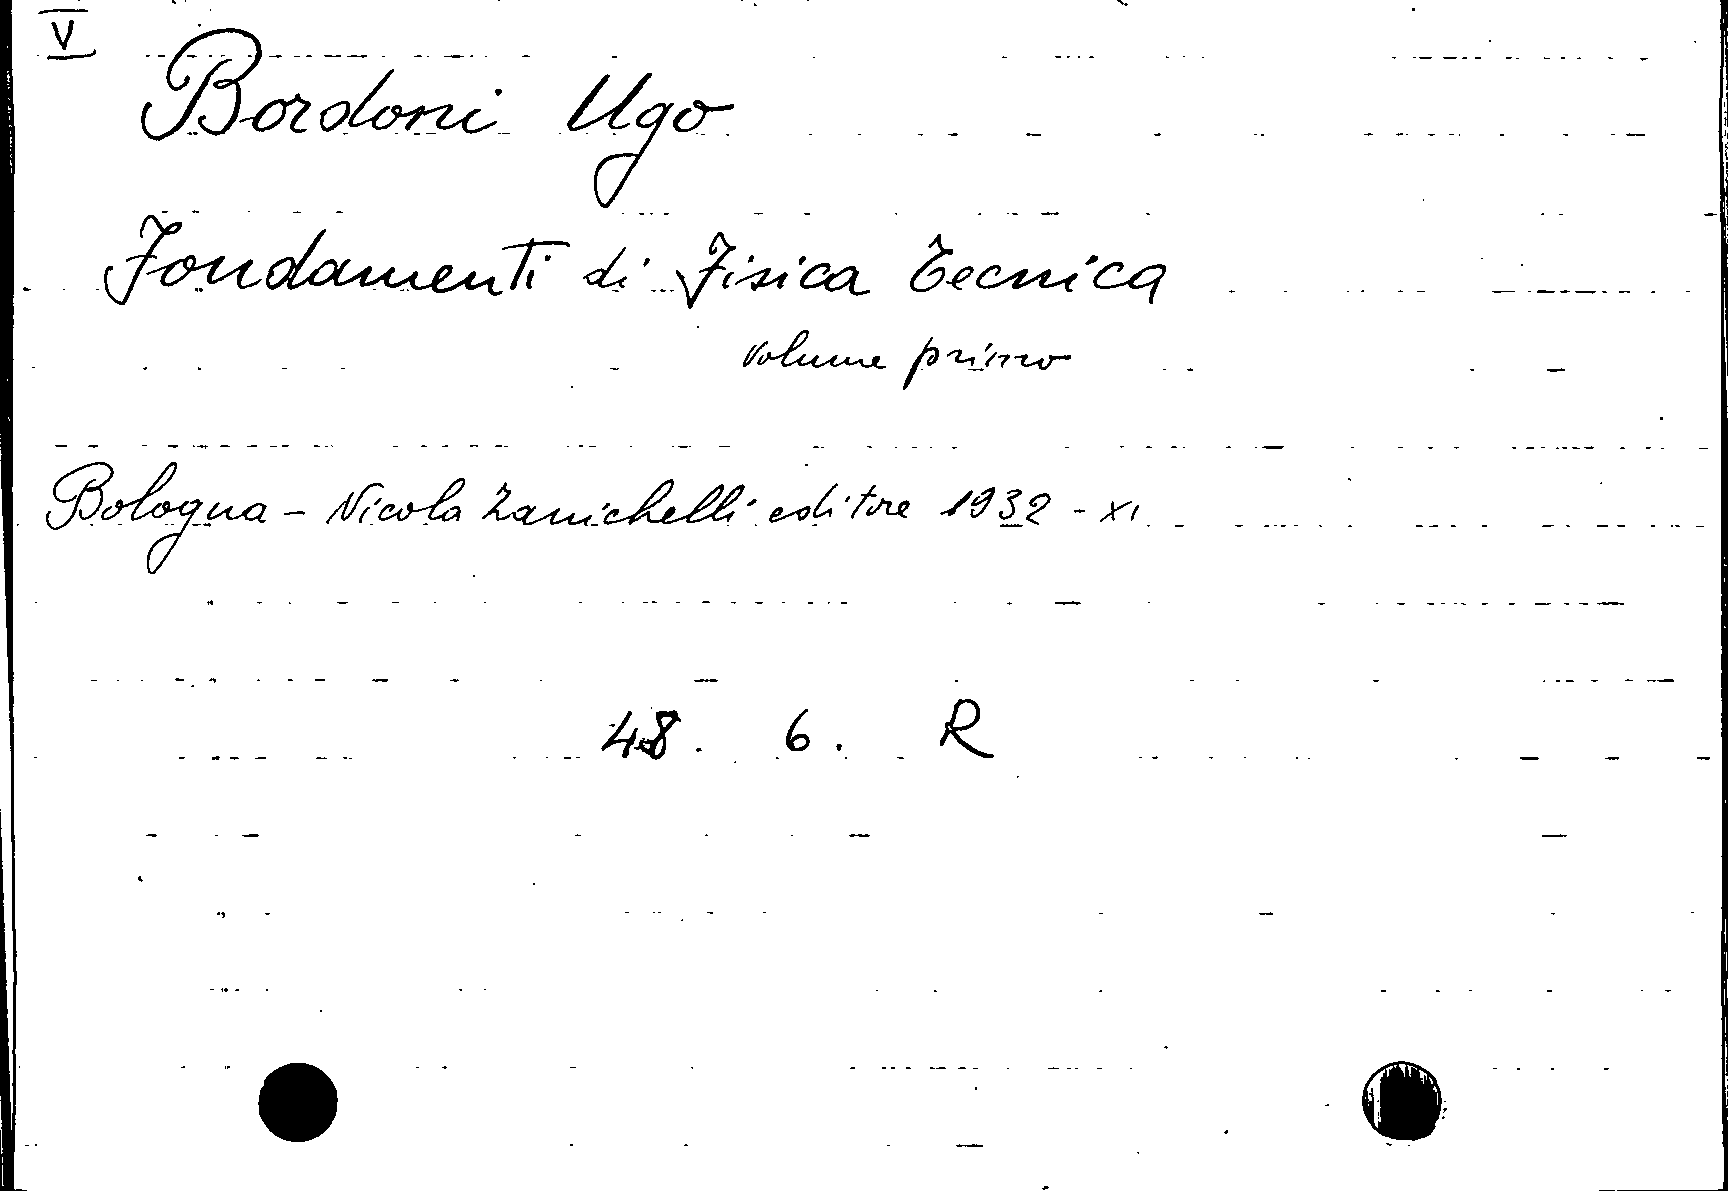 V
Bordoni Ugo
Fondamenti di Fisica Tecnica
volume primo
Bologna - Nicola Zanichelli editore 1932 - XI
48. 6. R